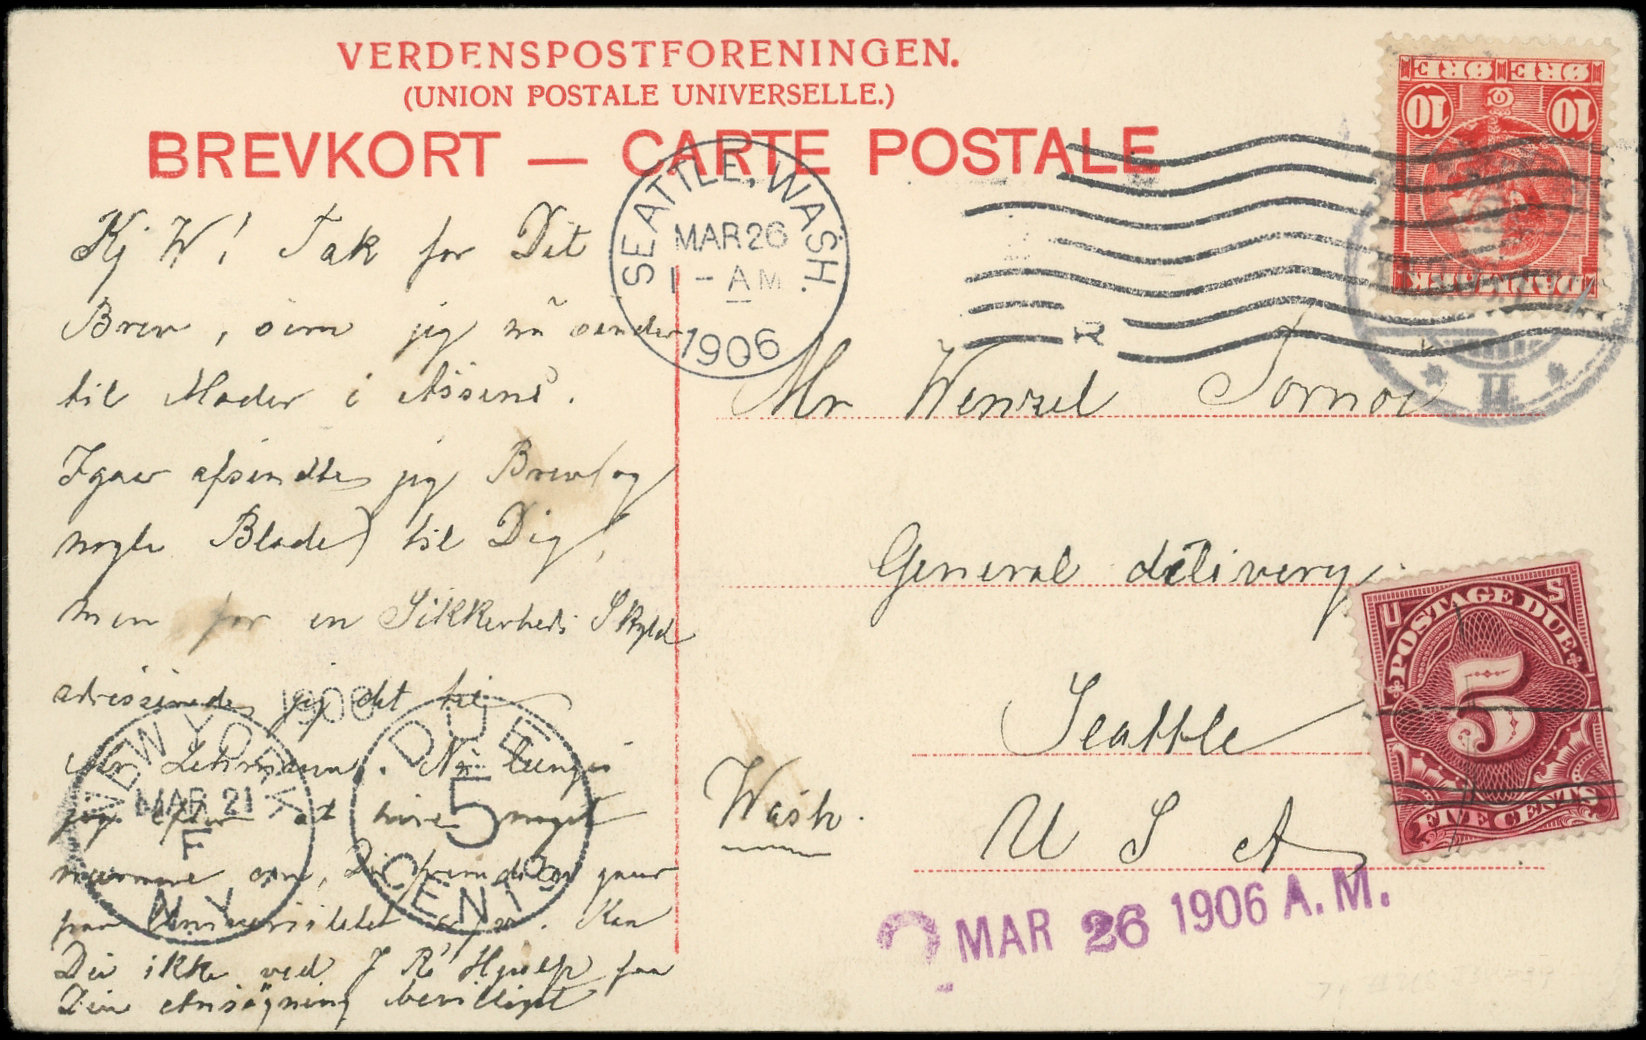 VERDENSPOSTFORENINGEN.
(UNION POSTALE UNIVERSELLE.)
BREVKORT — CARTE POSTALE
10 10
ØRE ØRE
DANMARK
SEATTLE, WASH.
MAR 26
1 - AM
1906
Kj W! Tak for Dit
Brev, som jeg nu sender
til Moder i Assens.
Igaar afsendtes jeg Brev (og
nogle Blade) til Dig,
men for en Sikkerheds Skyld
adresseredes jeg det til
Lehmann. Nu længes
jeg efter at høre noget
nærmere om,
paa Universitetet Kan
Du ikke ved J R's Hjælp faa
Din Ansøgning bevilliget
Mr Wenzel Tornøe
General delivery.
Seattle
Wash.
U S A
U S
POSTAGE DUE
5
FIVE CENTS
NEW YORK
MAR 21
F
N.Y.
1906
DUE
5
CENTS
2 MAR 26 1906 A.M.